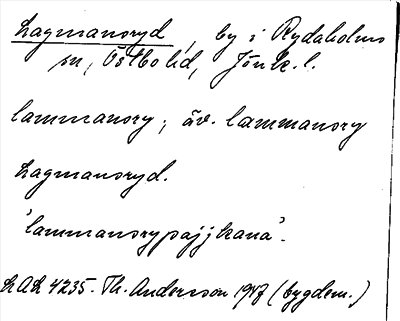 Lagmansryd, by i Rydaholms
sn, Östbo hd, Jönk. l.
lammanory; äv. lammanory
Lagmanoryd.
'lammanorypajjkana'.
LAL 4235. Th. Andersson 1917 (bygdem.)